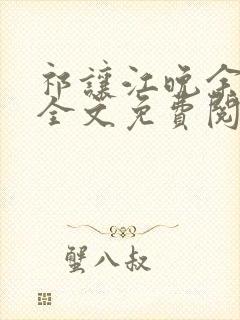 祁讓江晚余
全文免費閱
蟹八叔